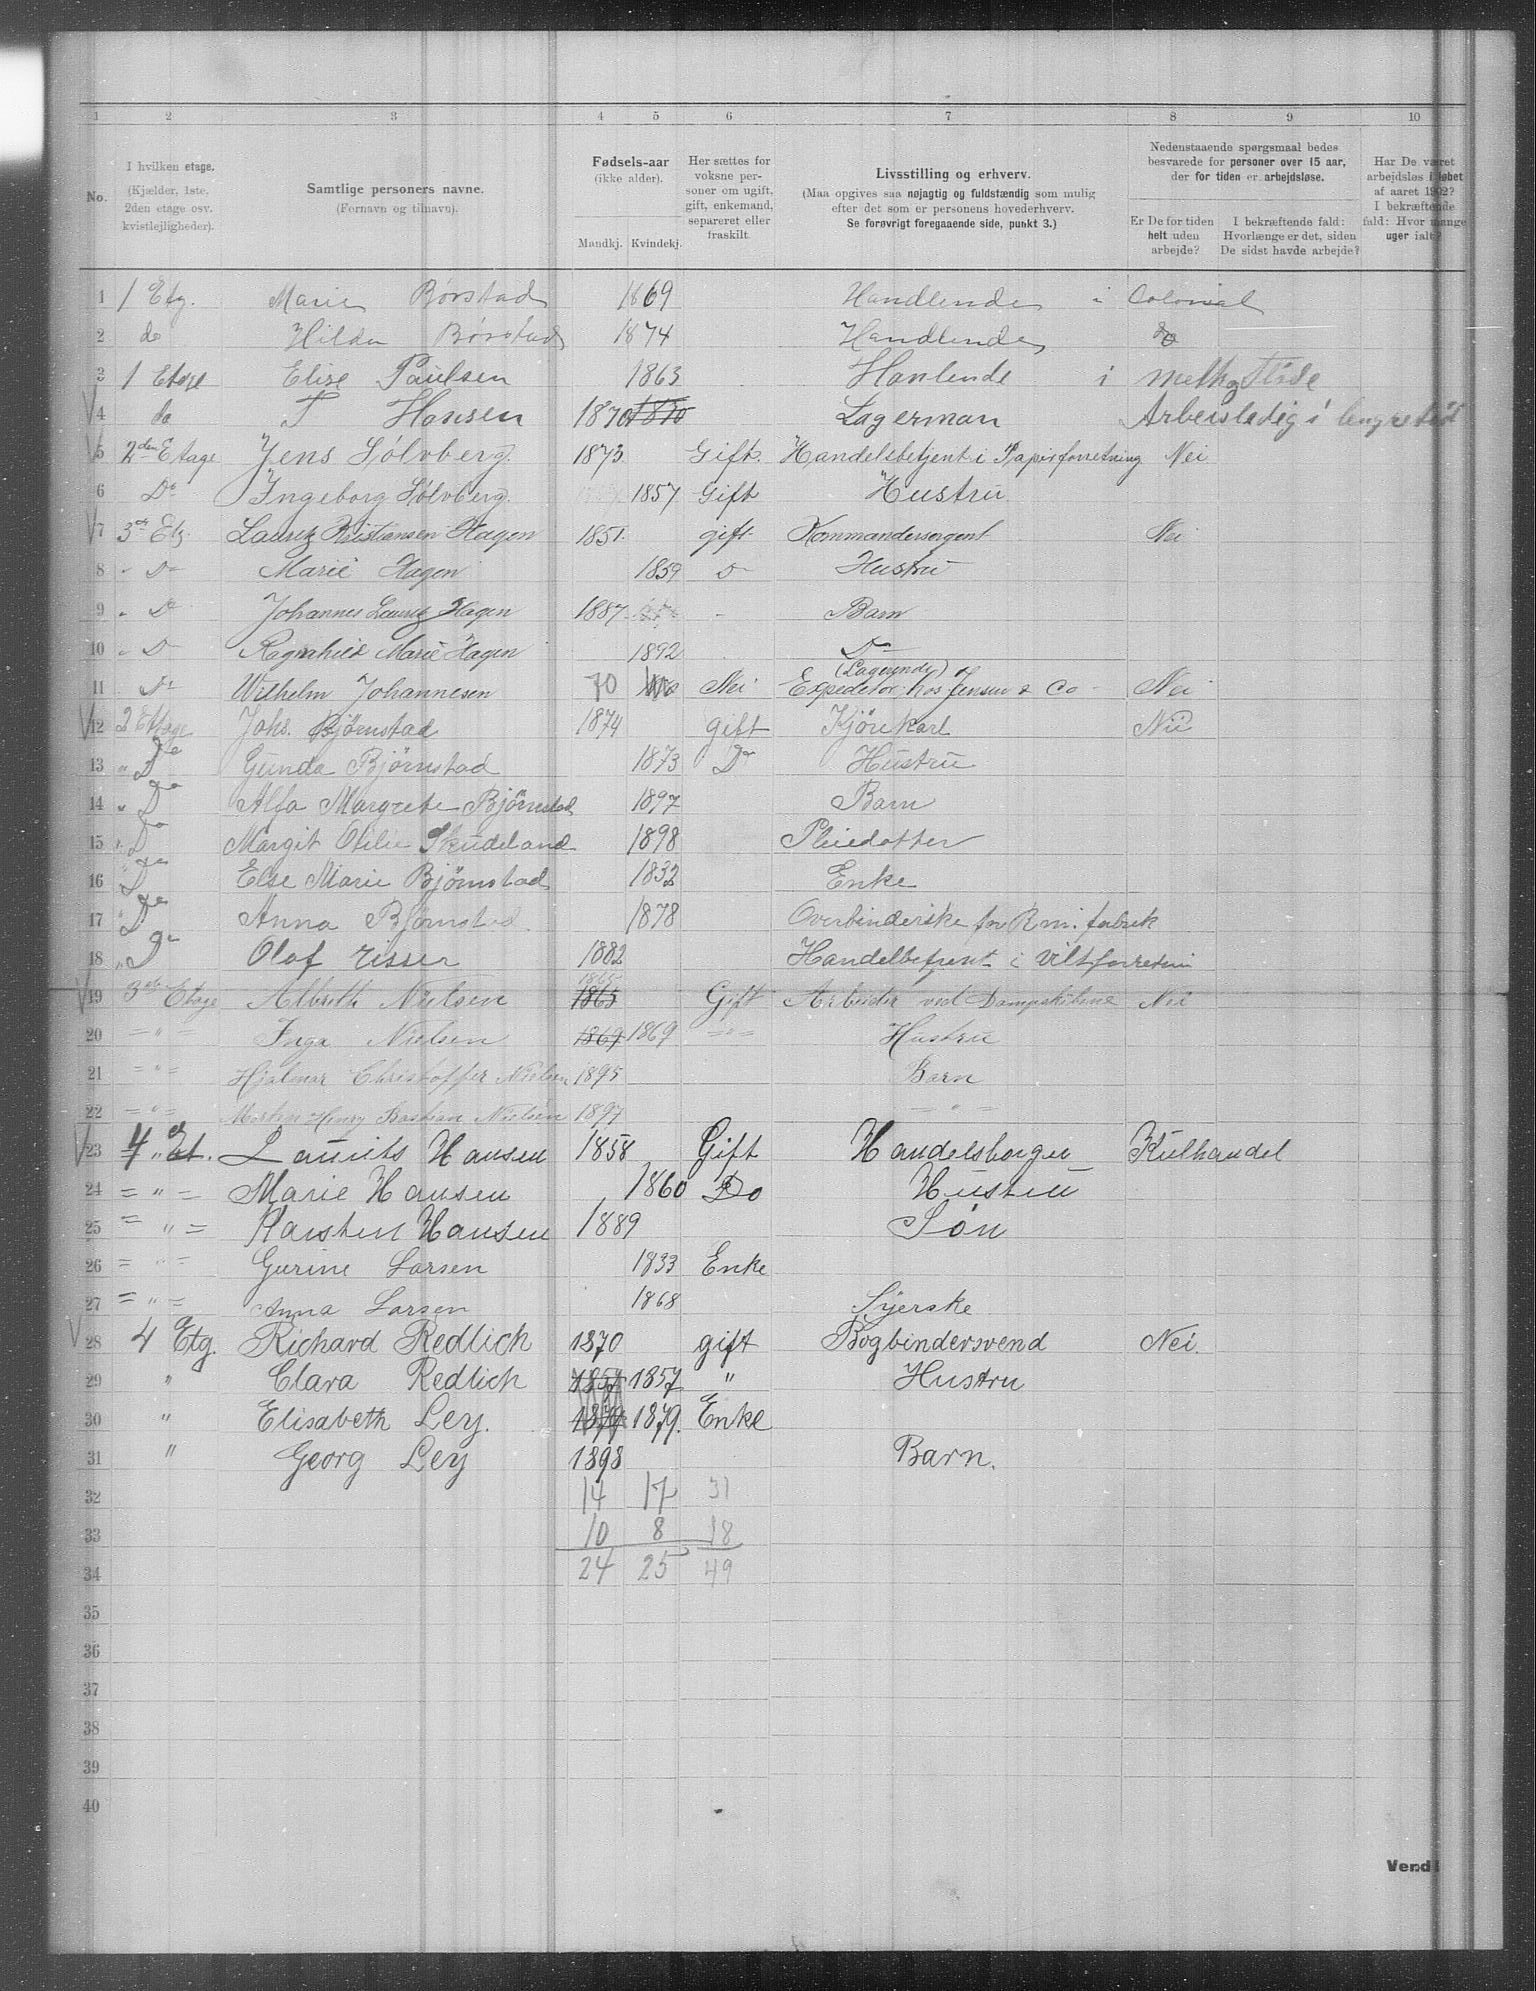 1 2 3 4 5 6 7 8 9 10
No.
I hvilken etage.
(Kjælder, 1ste, 2den etage osv. kvistlejligheder).
Samtlige personers navne.
(Fornavn og tilnavn).
Fødsels-aar
(ikke alder).
Mandkj. Kvindekj.
Her sættes for voksne personer om ugift, gift, enkemand, separeret eller fraskilt.
Livsstilling og erhverv.
(Maa opgives saa nøjagtig og fuldstændig som mulig
efter det som er personens hovederhverv.
Se forøvrigt foregaaende side, punkt 3.)
Nedenstaaende spørgsmaal bedes
besvarede for personer over 15 aar,
der for tiden er arbejdsløse.
Er De for tiden helt uden arbejde?
I bekræftende fald: Hvorlænge er det, siden De sidst havde arbejde?
Har De været arbejdsløs i løbet af aaret 1902? I bekræftende fald: Hvor mange uger ialt?
1 1 Etg. Marie Børstad 1869 Handlende i Colonial
2 do Hilda Børstad 1874 Handlende do
3 1 Etage Elise Paulsen 1863 Hanlende i
4 do T Hansen 1870 1870 Lagerman Arbeisledig i
5 2den Etage Jens Sølvberg. 1873 Gift. Handelsbetjent i Papirforretning Nei
6 Do Ingeborg Sølvberg. 1857 Gift Hustru
7 3die Etg. Lauritz Kristiansen Hagen 1851. gift. Kommandersergent Nei
8 " Do Marie Hagen 1859 Do Hustru
9 " Do Johannes Lauritz Hagen 1887 - Barn
10 " Do Ragnhild Marie Hagen 1892 Do
11 Do Wilhelm Johannesen 70 Nei Expeditør, hos Jensen & Co - Nei
12 2 Etage Johs. Bjørnstad 1874 gift Kjørekarl Nii
13 " Do Gunda Bjørnstad 1873 Do Hustru
14 " Do Alfa Margrete Bjørnstad 1897 Barn
15 " Do Margit Otilie Skudeland 1898 Pleiedatter
16 " Do Else Marie Bjørnstad 1832 Enke
17 " Do Anna Bjørnstad. 1878 Overbinderske for R.m. fabrik
18 " Do Olaf Risser 1882 Handelbetjent i Viltforretnin
19 3die Etage Albrekt Nielsen 1865 1865 Gift Arbeider ved Nei
20 = " = Inga Nielsen 1869 1869 = " = Hustru
21 = " = Hjalmar Christoffer Nielsen 1895 Barn
22 = " = Morten Henry Bastian Nielsen 1897 = " =
23 4 " Et. Laurits Hansen 1858 Gift Handelsborger Kulhandel
24 = " = Marie Hansen 1860 Do Hustru
25 = " = Karsten Hansen 1889 Søn
26 = " = Gurine Larsen 1833 Enke
27 = " = Anna Larsen 1868 Syerske
28 4 Etg. Richard Redlich 1870 gift Bogbindersvend Nei.
29 " Clara Redlich 1857 1857 " Hustru
30 " Elisabeth Ley. 1879 1879. Enke
31 " Georg Ley 1898 Barn.
32 14 17 31
33 10 8 18
34 24 25 49
35
36
37
38
39
40
Vend!